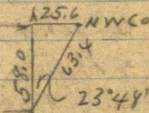 25.6 NW Co
58.0
63.4
23°49'